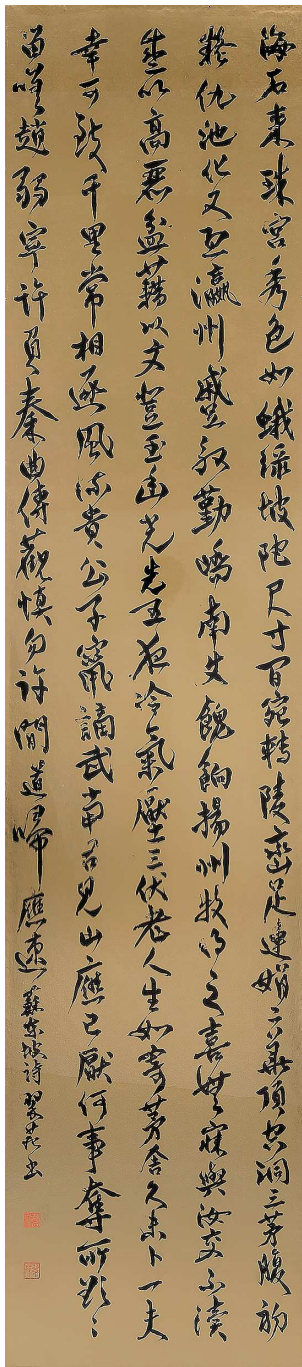 海石來珠宮秀色如蛾綠坡陀尺寸間宛轉陵巒足連娟二華頂空洞三茅腹初
疑仇池化又恐瀛州蹙殷勤嶠南史餽餉揚州牧得之喜無寐與汝交不瀆
盛以高麗盆藉以文登玉幽光先五夜冷氣壓三伏老人生如寄茅舍久未卜一夫
幸可致千里常相逐風流貴公子竄謫武當谷見山應已厭何事奪所欲〻
留嗟趙弱寧許負秦曲傳觀慎勿許間道歸應速 蘇東坡詩 書